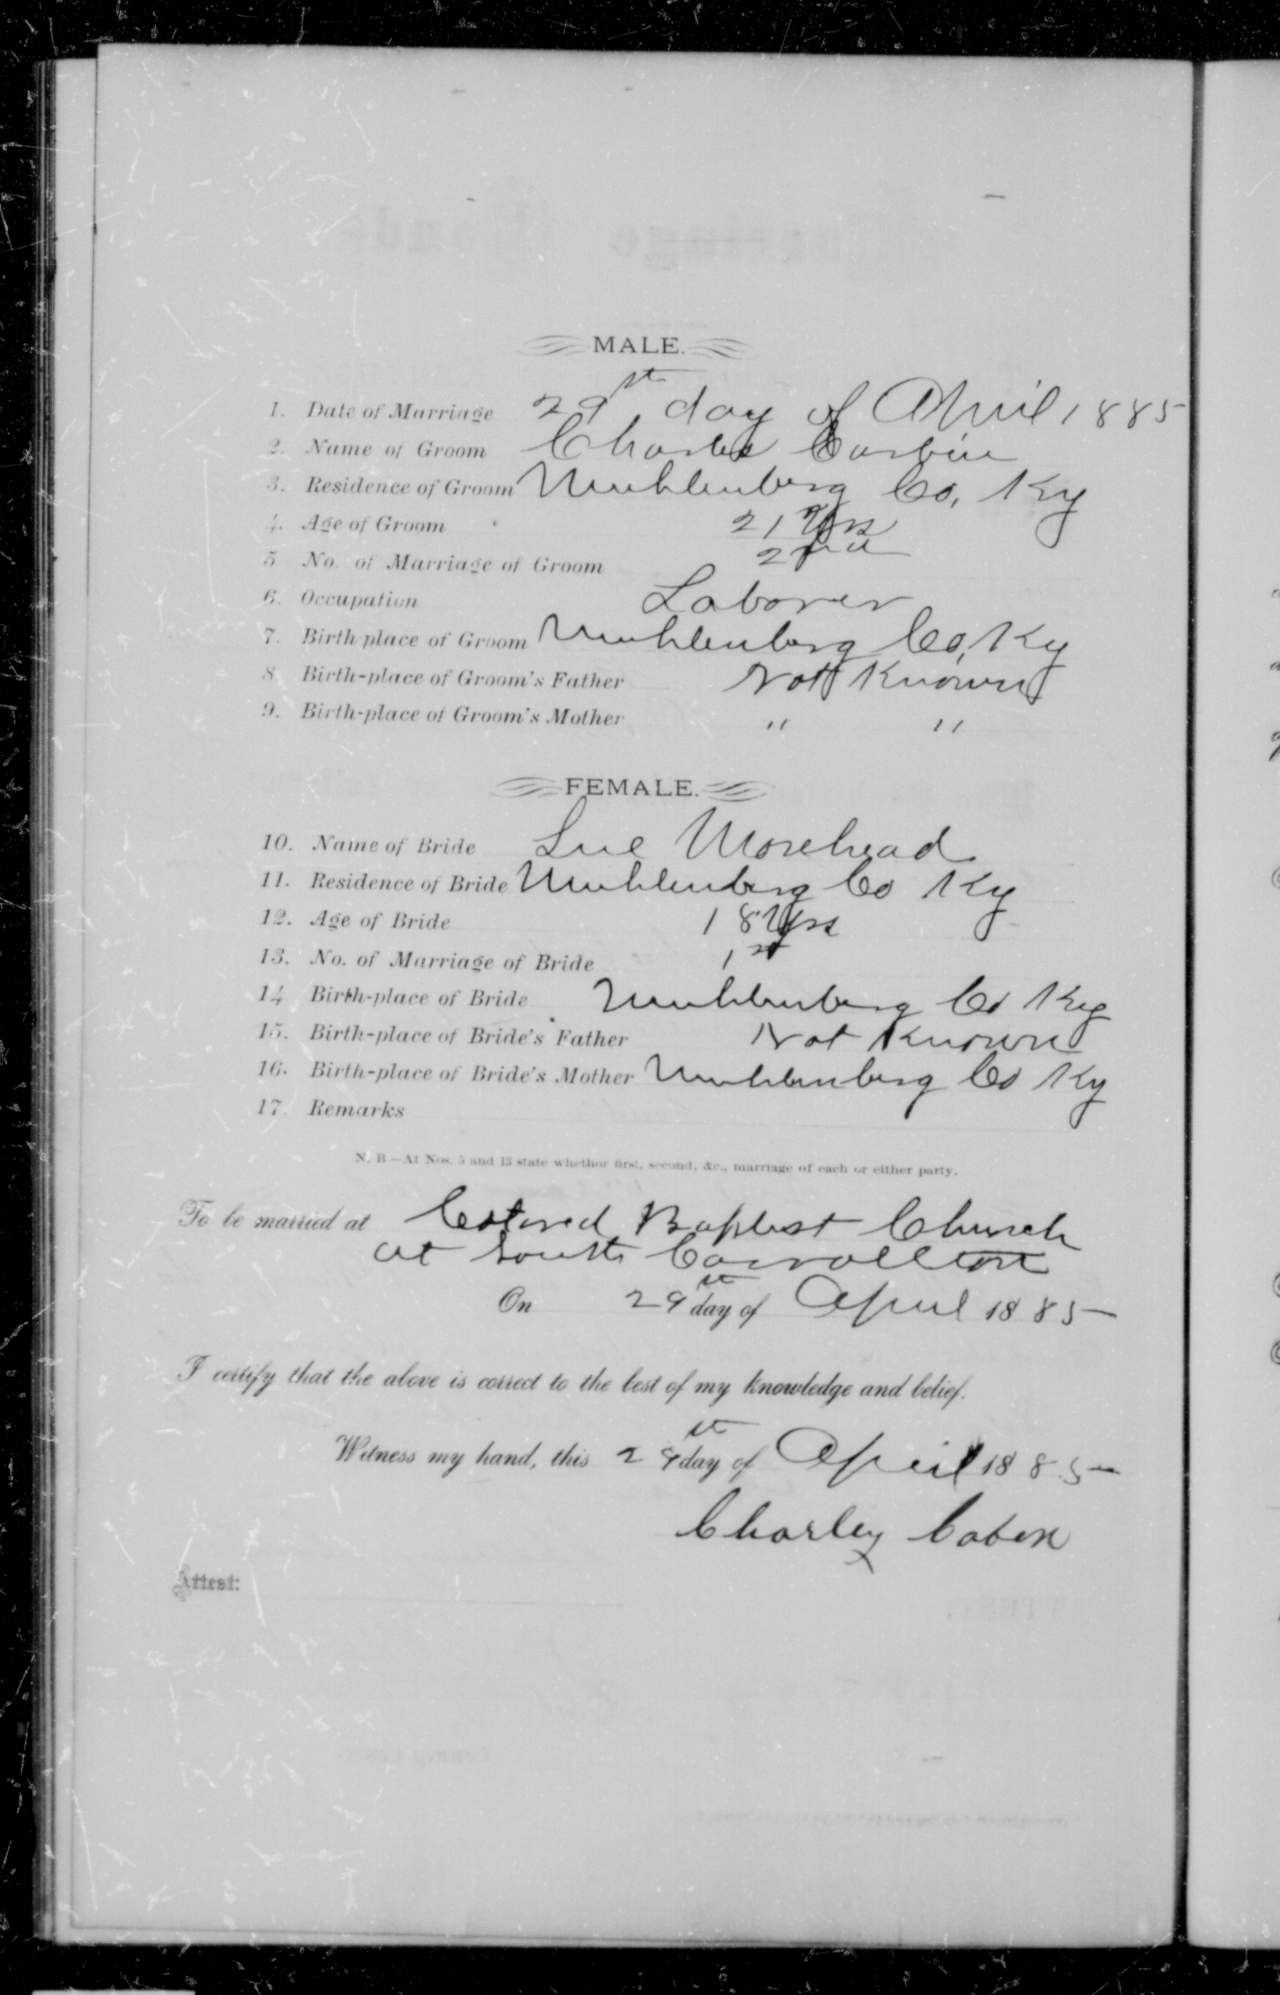 MALE.
1. Date of Marriage 29st day of April 1885
2. Name of Groom Charles Corbin
3. Residence of Groom Muhlenberg Co, Ky
4. Age of Groom 21 Yrs
5 No. of Marriage of Groom 2nd
6. Occupation Laborer
7. Birth-place of Groom Muhlenberg Co, Ky
8 Birth-place of Groom's Father Not Known
9. Birth-place of Groom's Mother " "
FEMALE.
10. Name of Bride Sue Morehead
11. Residence of Bride Muhlenberg Co Ky
12. Age of Bride 18 Yrs
13. No. of Marriage of Bride 1st
14 Birth-place of Bride Muhlenberg Co Ky
15. Birth-place of Bride's Father Not Known
16. Birth-place of Bride's Mother Muhlenberg Co Ky
17. Remarks
N. B—At Nos. 5 and 13 state whether first, second, &c., marriage of each or either party.
To be married at Colored Baptist Church
at South Carrollton
On 29st day of April 1885
I certify that the above is correct to the best of my knowledge and belief.
Witness my hand, this 29st day of April 1885
Charley Coben
Attest: